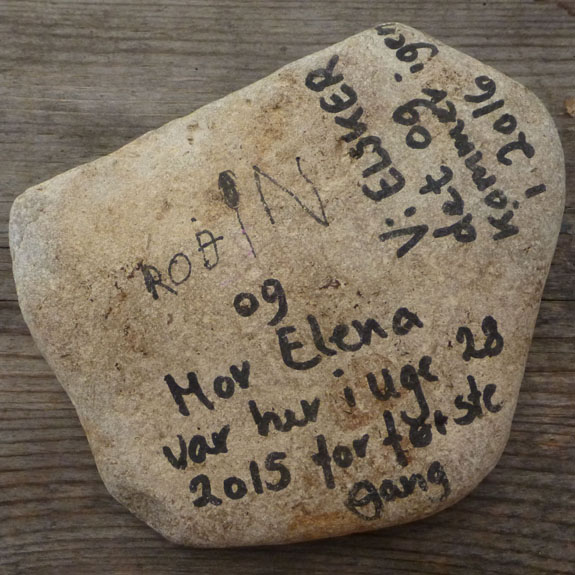 ROBIN
og
Mor Elena
var her i uge 28
2015 for første
gang
Vi ELSKER
det og
kommer igen
i 2016